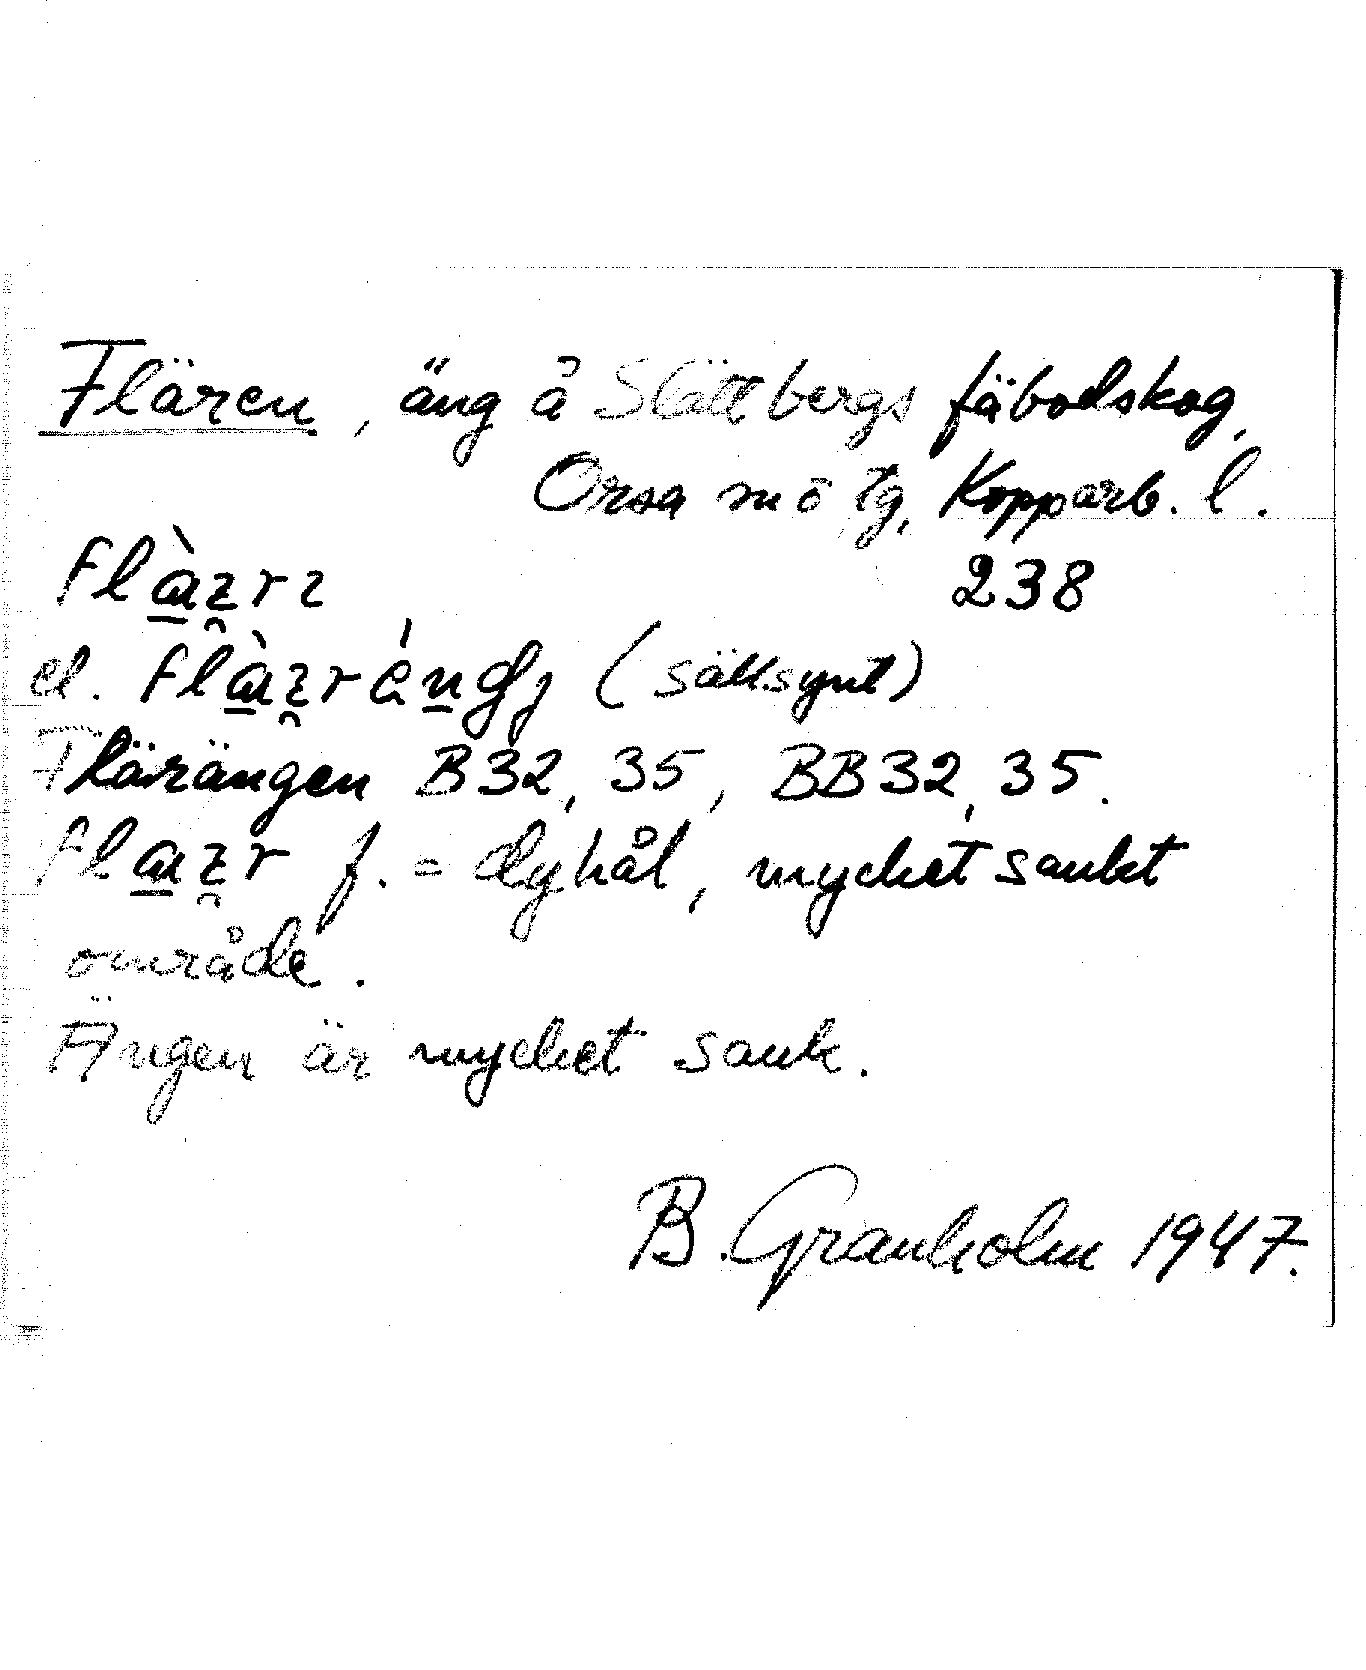 Flären, äng å Slättbergs fäbodskog,
Orsa sn ö tg, Kopparb. l.
238
el. (sällsynt)
Flärängen B32, 35, BB32, 35.
f. = dyhål, mycket sankt
område.
Ängen är mycket sank.
B. Granholm 1947.